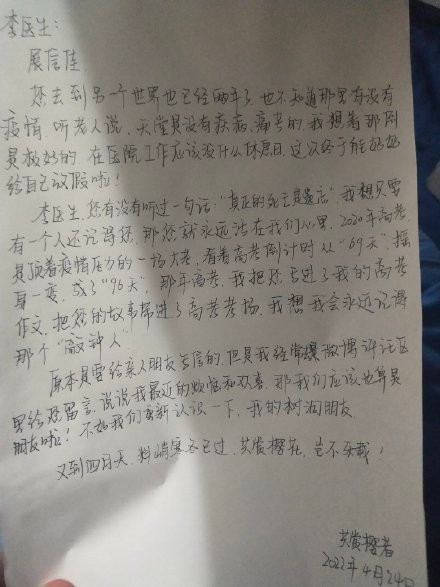 李医生:
展信佳
您去到另一个世界也已经两年了,也不知道那里有没有
疫情,听老人说,天堂是没有疾病、痛苦的,我想着那倒
是极好的,在医院工作应该没什么休息日,这次终于能好好
给自己放假啦!
李医生,您有没有听过一句话:“真正的死亡是遗忘”,我想只要
有一个人还记得您,那您就永远活在我们心里,2020年高考,
是顶着疫情压力的一场大考,看着高考倒计时从“69天”,摇
身一变,成了“96天”,那年高考,我把您写进了我的高考
作文,把您的故事带进了高考考场,我想我会永远记得
那个“敲钟人”
原本是要给亲人朋友写信的,但是我经常爆微博评论区
里给您留言,说说我最近的烦恼和欢喜,那我们应该也算是
朋友啦!不如我们重新认识一下,我的树洞朋友
又到四月天,料峭寒冬已过,共赏樱花,岂不乐哉!
共赏樱者
2022年4月24日